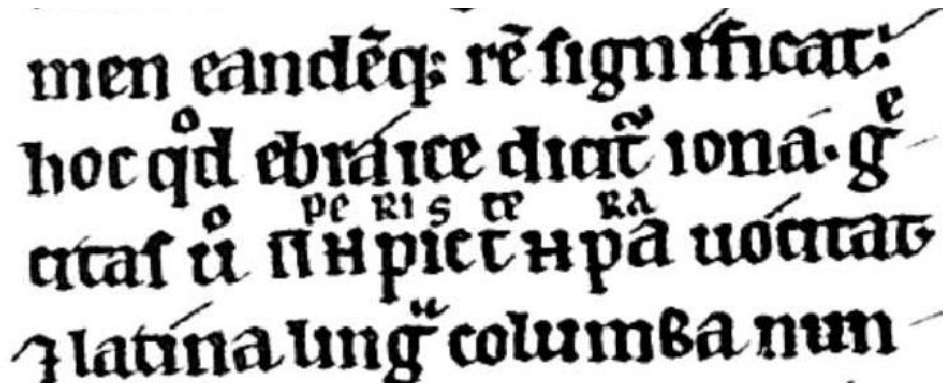 men eandēq; rē significat:
hoc qͦd ebráice dicit᷑ iona. gͤ
PE RI S TE RA
citas uͦ ΠΗΡΙCΤΗΡΑ uócitat
⁊ latína lingͣ columba nun